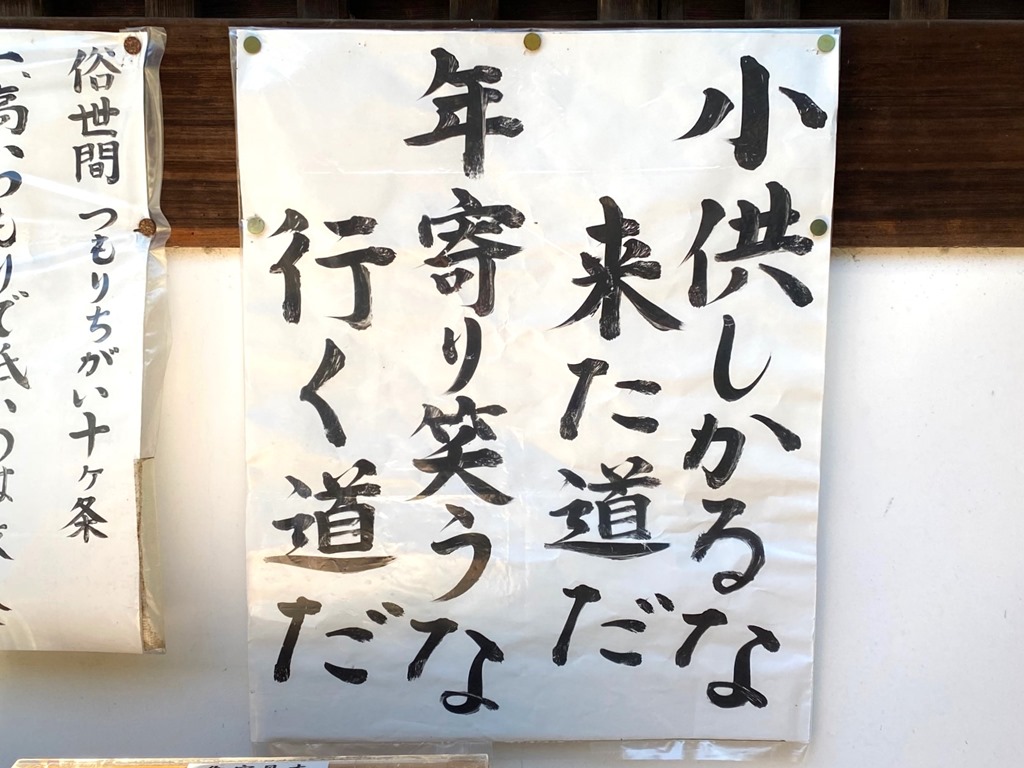 小供しかるな
来た道だ
年寄り笑うな
行く道だ
俗世間 つもりちがい十ヶ条
一、高いつもりで低いのは